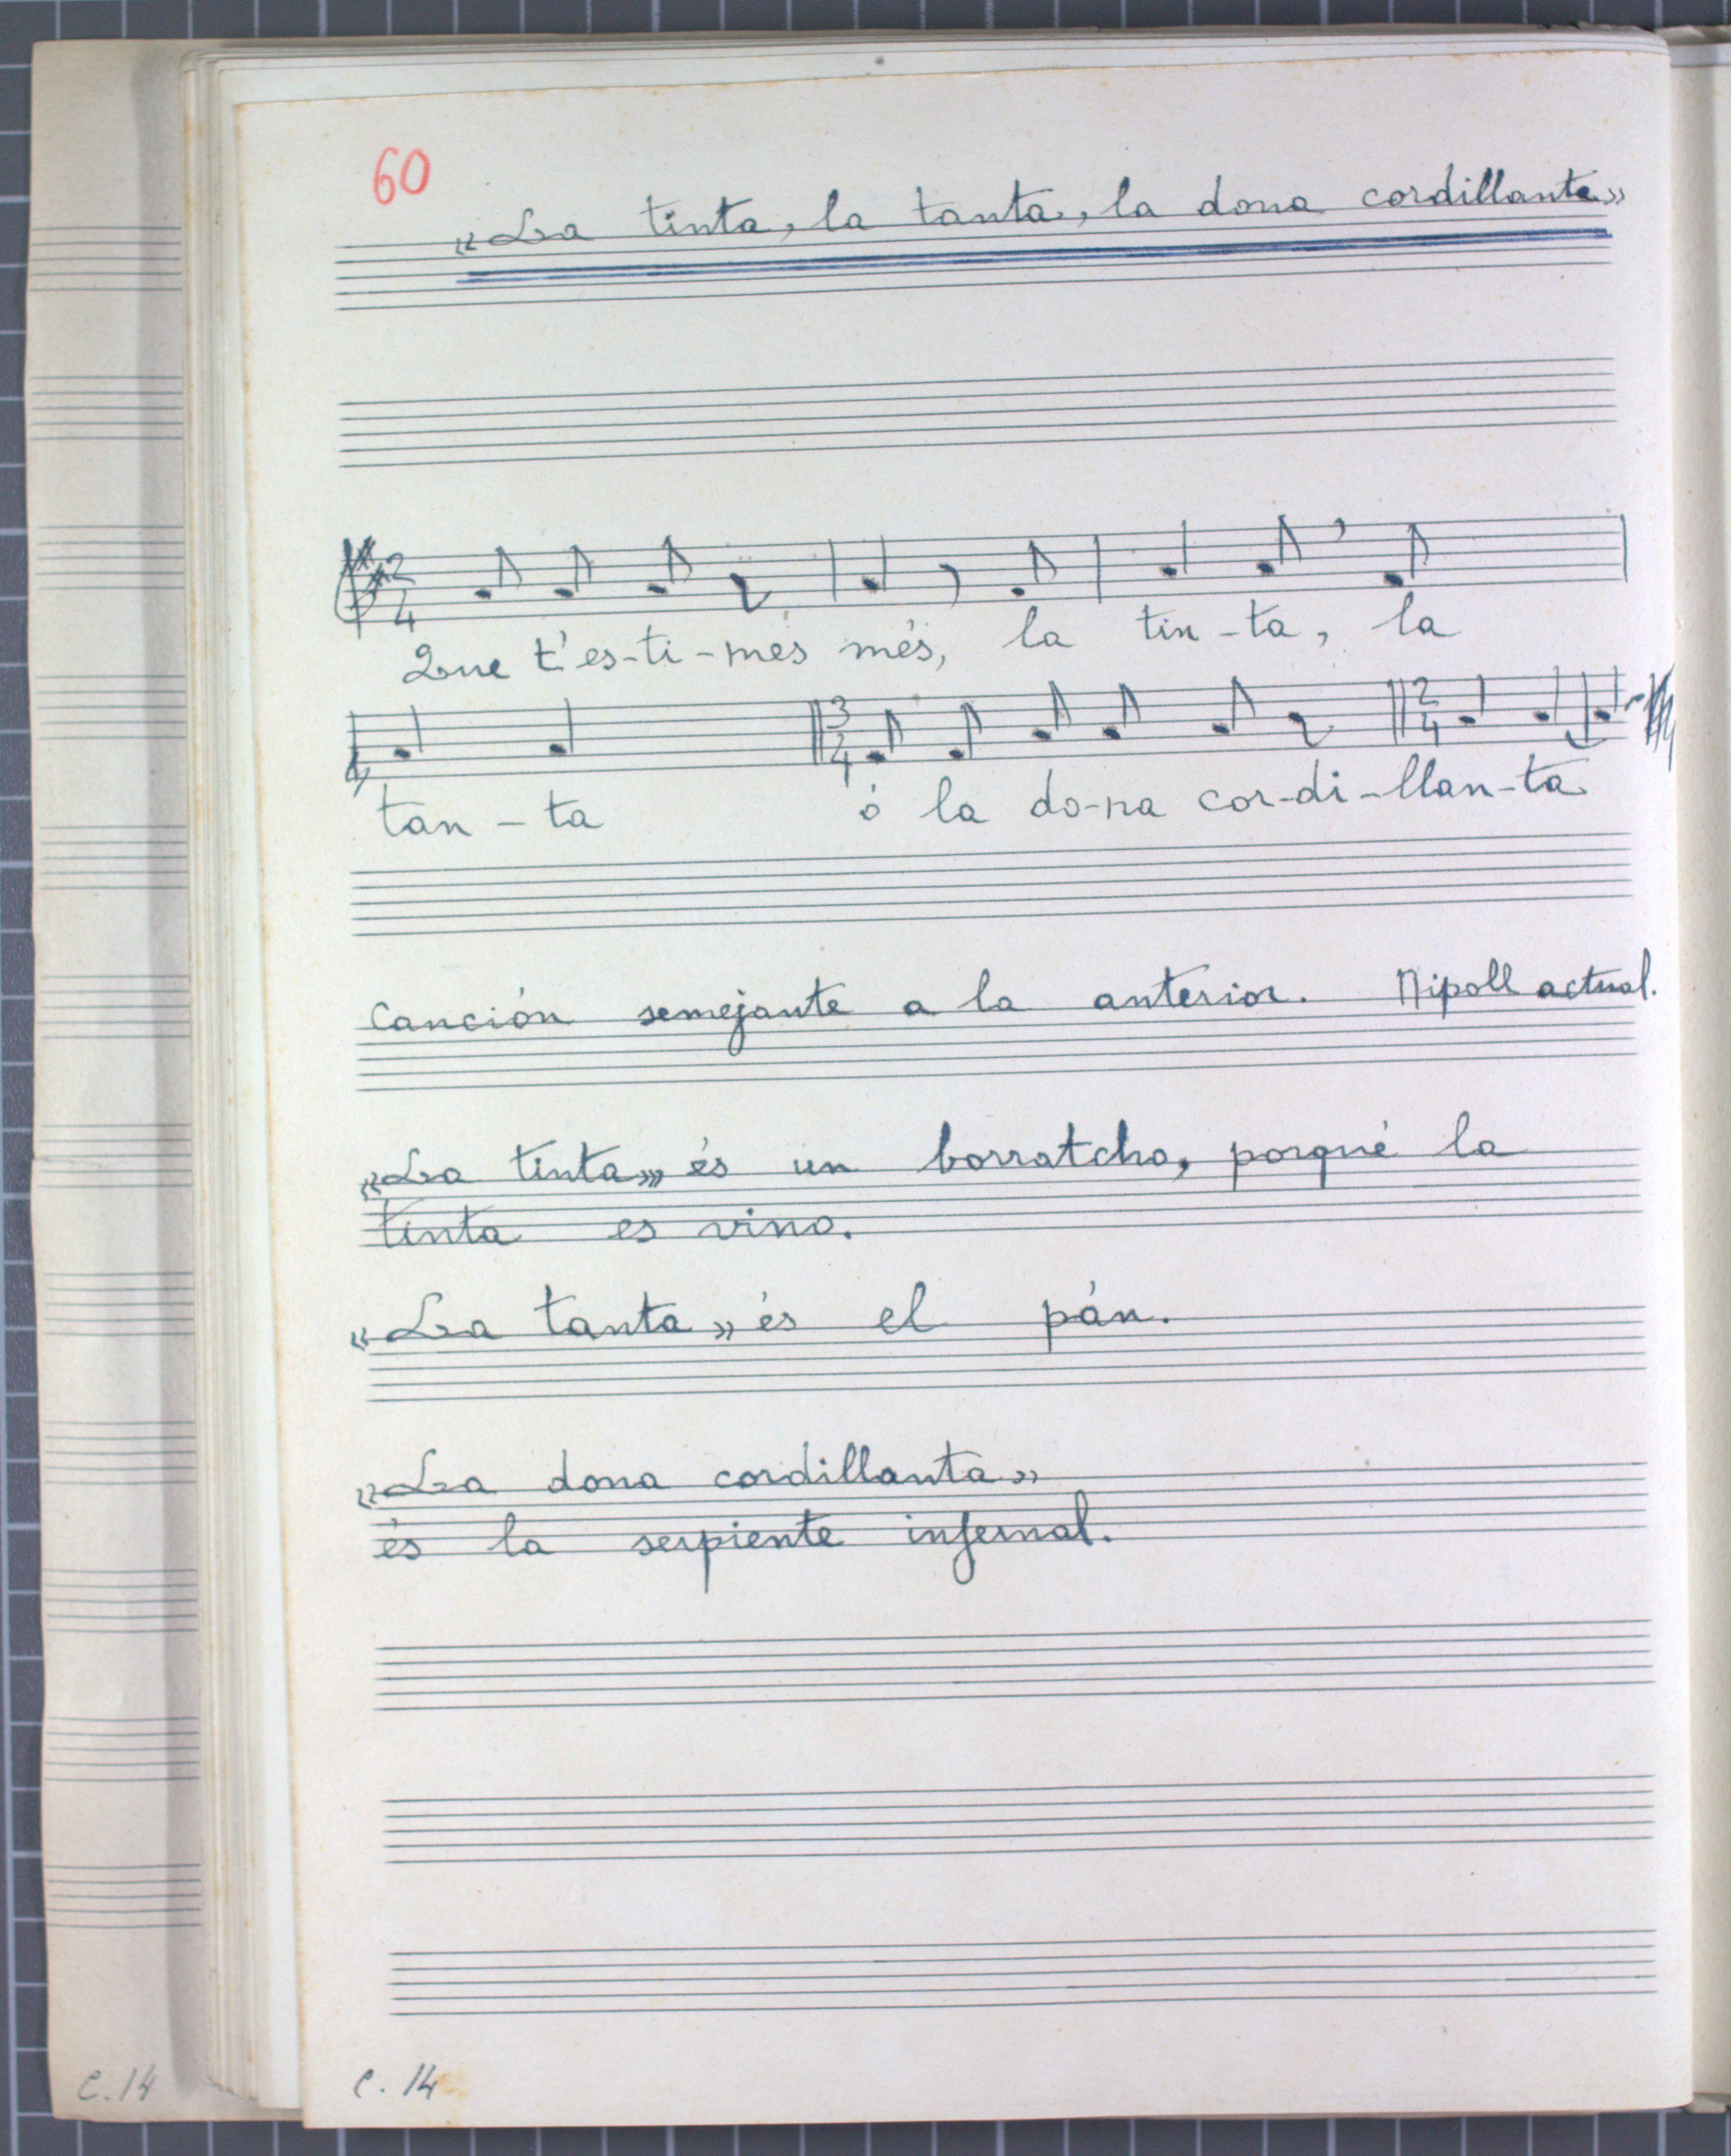 60
«La tinta, la tanta, la dona cordillanta»
2
4
Que t'es-ti-mes més, la tin-ta, la
3
4
2
4
tan-ta ó la do-na cor-di-llan-ta
Canción semejante a la anterior. Ripoll actual.
«La tinta», és un borratcho, porqué la
tinta es vino.
«La tanta» és el pán.
«La dona cordillanta»
és la serpiente infernal.
C.14
C.14